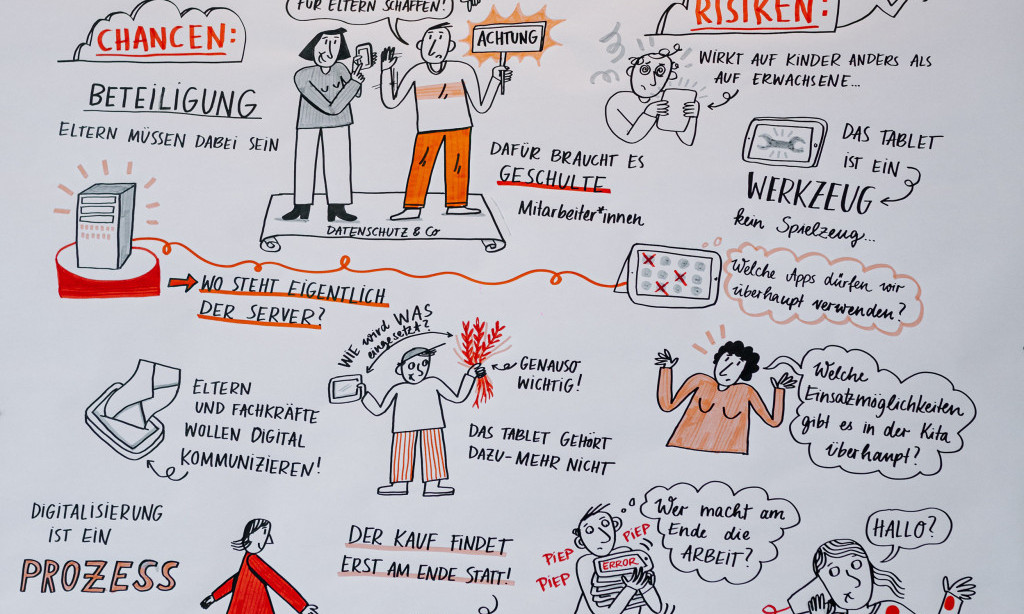 FÜR ELTERN SCHAFFEN!
CHANCEN:
BETEILIGUNG
ELTERN MÜSSEN DABEI SEIN
ACHTUNG
DATENSCHUTZ & Co
DAFÜR BRAUCHT ES
GESCHULTE
Mitarbeiter*innen
RISIKEN:
WIRKT AUF KINDER ANDERS ALS
AUF ERWACHSENE...
DAS TABLET
IST EIN
WERKZEUG
kein Spielzeug...
WO STEHT EIGENTLICH
DER SERVER?
Welche Apps dürfen wir
überhaupt verwenden?
ELTERN
UND FACHKRÄFTE
WOLLEN DIGITAL
KOMMUNIZIEREN!
WIE wird WAS
eingesetzt?
GENAUSO
WICHTIG!
DAS TABLET GEHÖRT
DAZU-MEHR NICHT
Welche
Einsatzmöglichkeiten
gibt es in der Kita
überhaupt?
DIGITALISIERUNG
IST EIN
PROZESS
DER KAUF FINDET
ERST AM ENDE STATT!
PIEP
PIEP
PIEP
ERROR
Wer macht am
Ende die
ARBEIT?
HALLO?